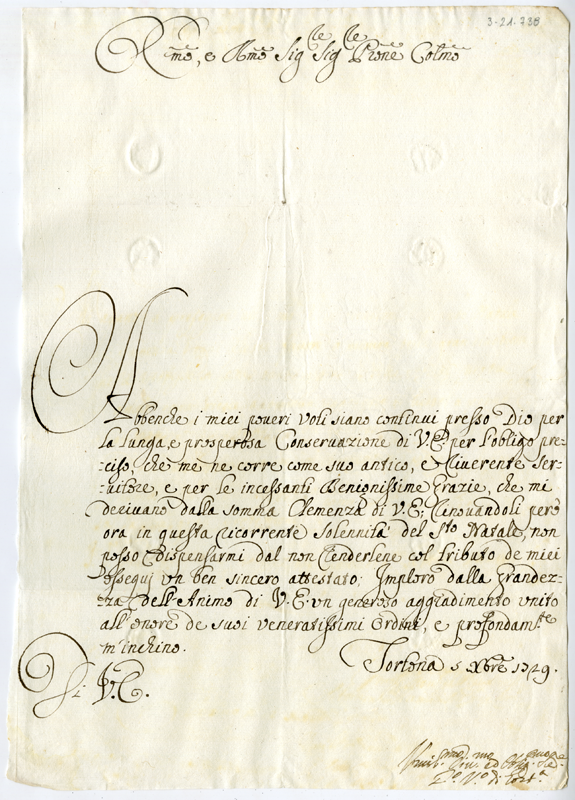 3-21.738
Rmo, e Illmo Sigle Sigle Prone Colmo
Abbenche i miei poveri Voti siano continui presso Dio per
la lunga, e prosperosa Conservazione di V.E. per l'obligo pre-
-ciso, che me ne corre come suo antico, e Riverente Ser-
-vitore, e per le incessanti Benignissime grazie, che mi
derivano dalla somma Clemenza di V.E; Rinovandoli però
ora in questa ricorrente Solennità del Sto Natale, non
posso dispensarmi dal non renderlene col tributo de miei
ossequi un ben sincero attestato; Imploro dalla grandez-
-za dell'Animo di V.E. un generoso aggradimento unito
all'onore de suoi veneratissimi Ordini, e profondamte
m'inchino.
Tortona 5 Xbre 1749.
Di V.E.